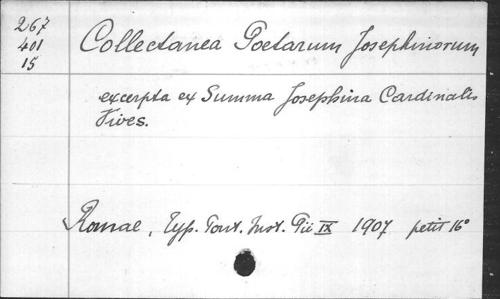 267
401
15
Collectanea Poetarum Josephinorum
excerpta ex Summa Josephina Cardinalis
Vives.
Romae, Typ. Pont. Inst. Pii IX 1907 petit 16°